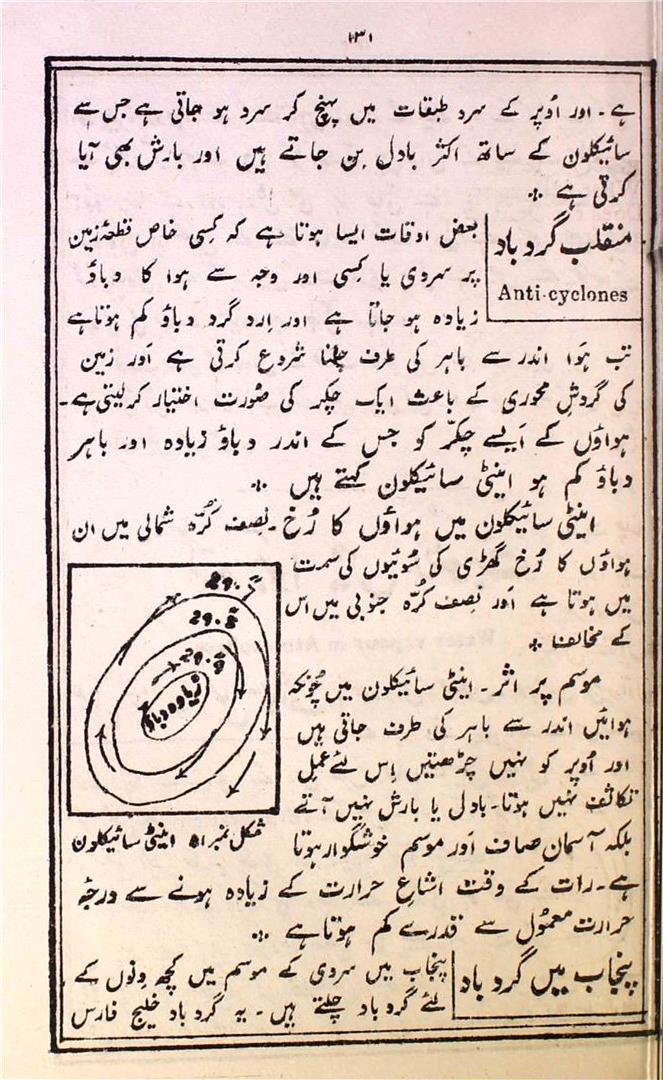 ۱۳۱
ہے۔ اور اُوپر کے سرد طبقات میں پہنچ کر سرد ہو جاتی ہے جس سے
سائیکلون کے ساتھ اکثر بادل بن جاتے ہیں اور بارش بھی آیا
کرتی ہے ؞
منقلب گرد باد
Anti-cyclones
بعض اوقات ایسا ہوتا ہے کہ کسی خاص قطعۂ زمین
پر سردی یا کسی اور وجہ سے ہوا کا دباؤ
زیادہ ہو جاتا ہے اور اِرد گرد دباؤ کم ہوتا ہے
تب ہَوا اندر سے باہر کی طرف چلنا شروع کرتی ہے اَور زمین
کی گردشِ محوری کے باعث ایک چکر کی صُورت اختیار کر لیتی ہے۔
ہواؤں کے اَیسے چکّر کو جس کے اندر دباؤ زیادہ اور باہر
دباؤ کم ہو اینٹی سائیکلون کہتے ہیں ؞
اینٹی سائیکلون میں ہواؤں کا رُخ۔ نِصف کُرّہ شمالی میں ان
ہواؤں کا رُخ گھڑی کی سُوئیوں کی سمت
میں ہوتا ہے اَور نِصف کُرّہ جنوبی میں اس
کے مخالف ؞
موسم پر اثر۔ اینٹی سائیکلون میں چُونکہ
ہوائیں اندر سے باہر کی طرف جاتی ہیں
اور اُوپر کو نہیں چڑھتیں اِس لئے عملِ
تکاثف نہیں ہوتا۔ بادل یا بارش نہیں آتے
بلکہ آسمان صاف اَور موسم خوشگوار ہوتا
29.
29.
29.
زیادہ دباؤ
شکل نمبر ۵۱ اینٹی سائیکلون
ہے۔ رات کے وقت اشاعِ حرارت کے زیادہ ہونے سے درجۂ
حرارت معمُول سے قدرے کم ہوتا ہے ؞
پنجاب میں گرد باد
پنجاب میں سردی کے موسم میں کچھ دِنوں کے
لئے گرد باد چلتے ہیں۔ یہ گرد باد خلیج فارس